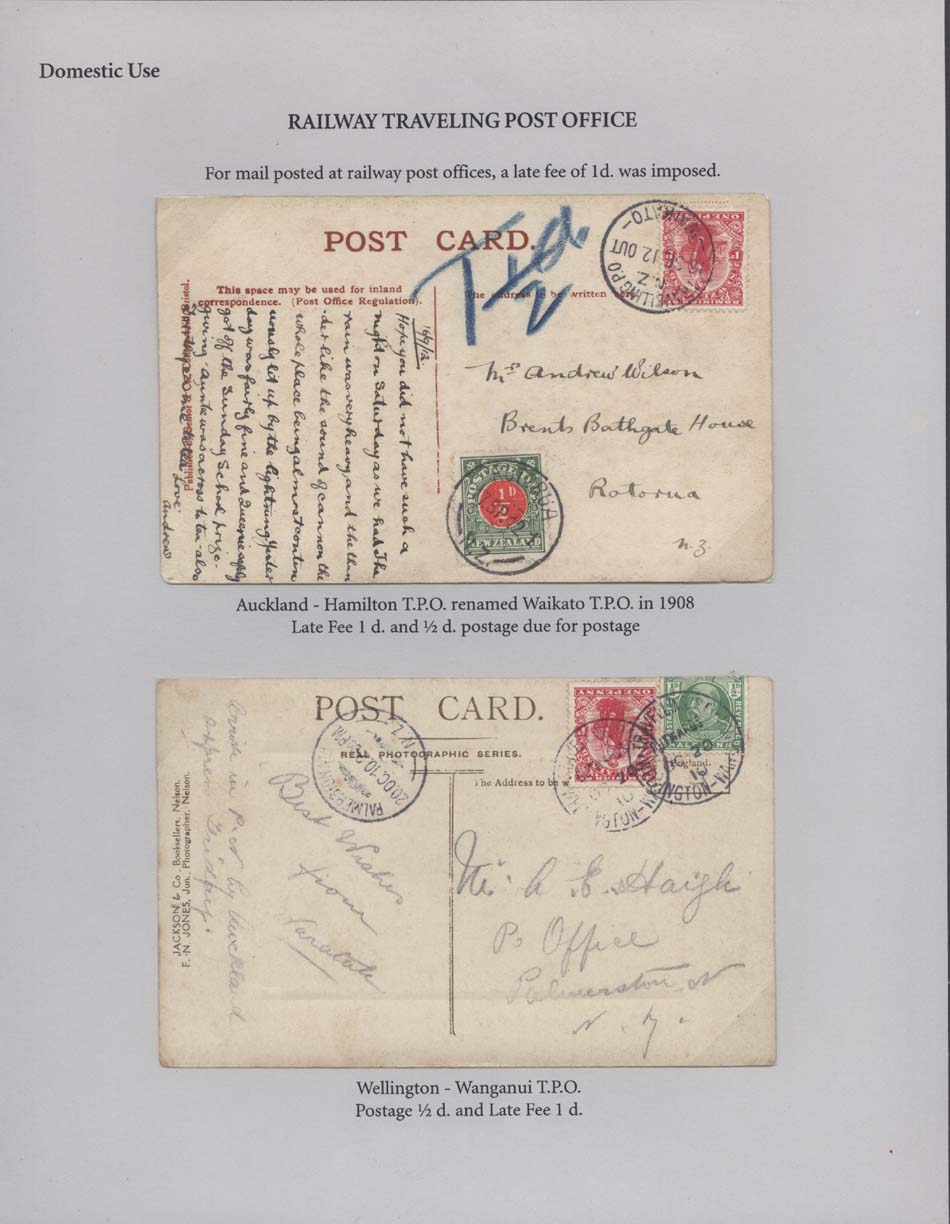 Domestic Use
RAILWAY TRAVELING POST OFFICE
For mail posted at railway post offices, a late fee of 1d. was imposed.
POST CARD.
T 1d. 2
WAIKATO
N.Z.
12 OUT
ONE PENNY
This space may be used for inland
correspondence. (Post Office Regulation).
The address to be written here
16/9/12.
Hope you did not have such a
night on Saturday as we had. The
rain was very heavy and the thun
-der like the sound of cannon the
whole place being almost contin
uously lit up by the lightning. Yester
day was fairly fine and Queenie
got off the Sunday School prize-
giving. Auntie was across to tea also
Love
Andrew
Bristol.
Mr Andrew Wilson
Brents Bathgate House
Rotorua
N.Z.
POSTAGE DUE
½D
NEW ZEALAND
ROTORUA
Auckland - Hamilton T.P.O. renamed Waikato T.P.O. in 1908
Late Fee 1 d. and ½ d. postage due for postage
POST CARD.
REAL PHOTOGRAPHIC SERIES.
The Address to be w
England.
ONE PENNY
HALF PENNY
PALMERSTON N.
20 OC 10
N.Z.
Best Wishes
from
Arrive in P. N by Auckland
express Friday.
JACKSON & Co., Booksellers, Nelson.
F. N. JONES, Jun., Photographer, Nelson.
Mr A E. Haigh
P. Office
Palmerston N
N. Z.
Wellington - Wanganui T.P.O.
Postage ½ d. and Late Fee 1 d.